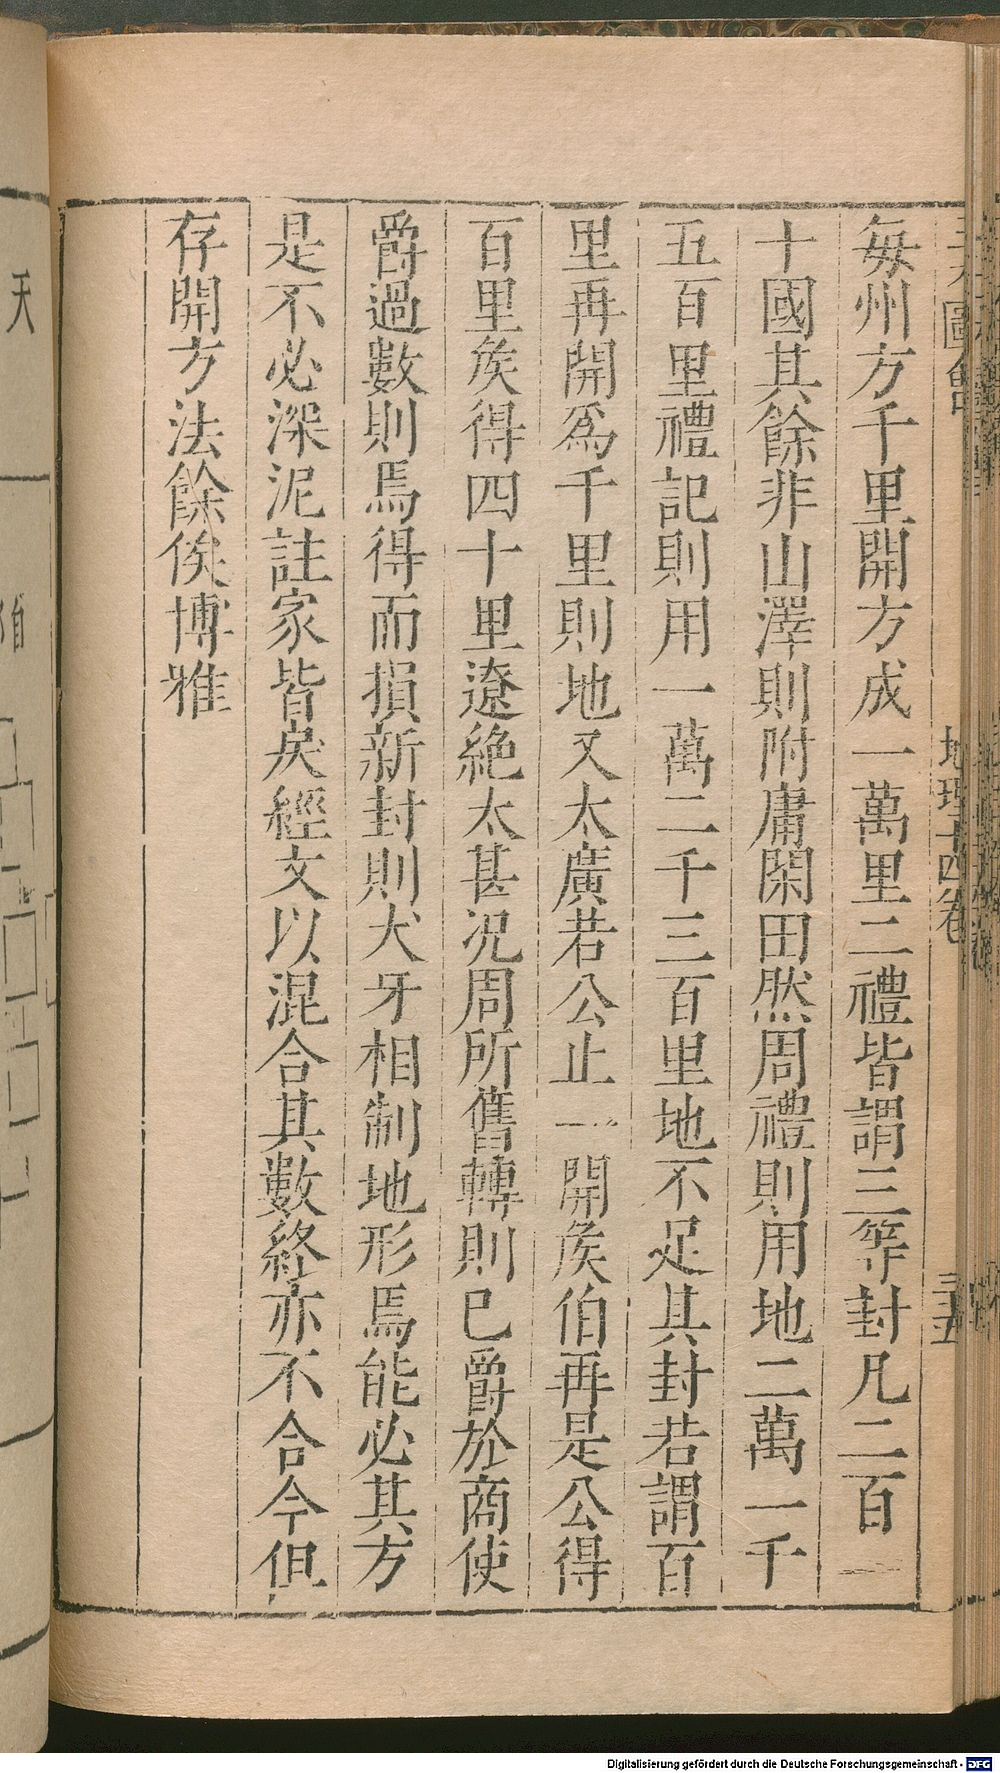 每州方千里開方成一萬里二禮皆謂三等封凡二百一
十國其餘非山澤則附庸閑田然周禮則用地二萬一千
五百里禮記則用一萬二千三百里地不足其封若謂百
里再開爲千里則地又太廣若公止一開矦伯再是公得
百里矦得四十里遼絶太甚况周所舊轉則已爵於商使
爵過數則焉得而損新封則犬牙相制地形焉能必其方
是不必深泥註家皆戾經文以混合其數終亦不合今但
存開方法餘俟博雅
圖會
地理十四卷
三五
天
Digitalisierung gefördert durch die Deutsche Forschungsgemeinschaft - DFG